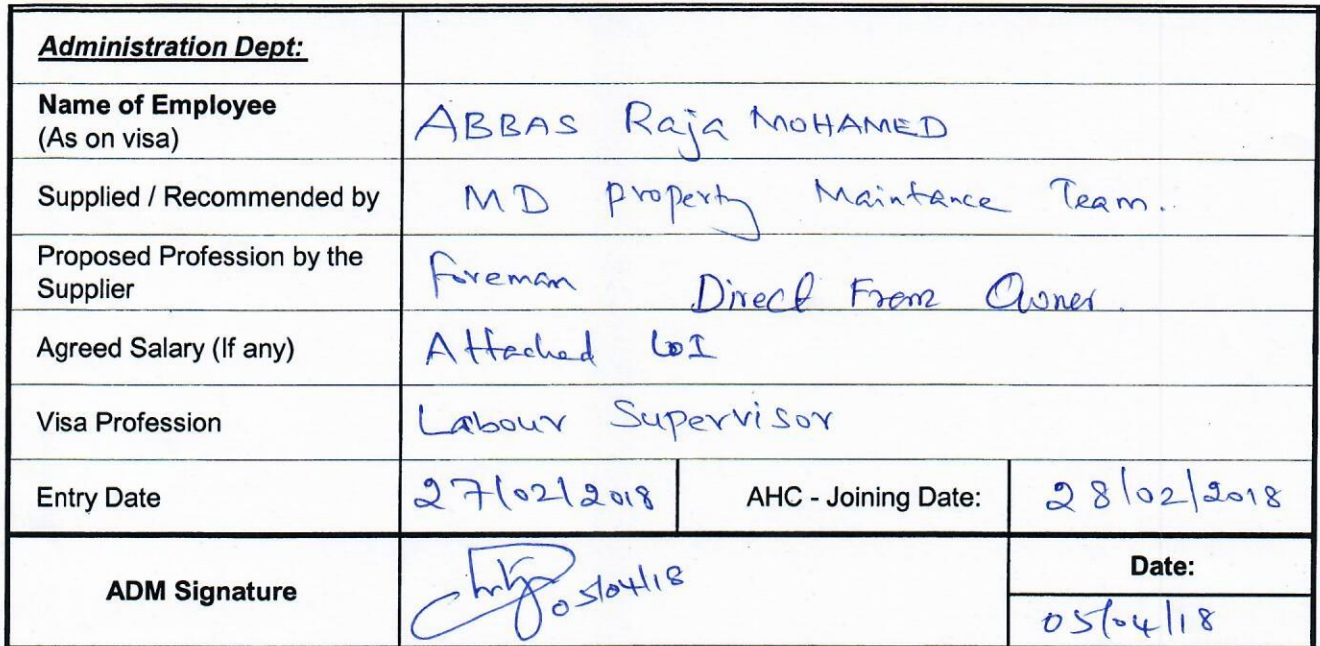 Administration Dept:
Name of Employee ABBAS Raja MOHAMED
(As on visa)
Supplied / Recommended by MD property Maintance Team.
Proposed Profession by the
Supplier foreman Direct From Owner.
Agreed Salary (If any) Attached LOI
Visa Profession Labour Supervisor
Entry Date 27/02/2018 AHC - Joining Date: 28/02/2018
ADM Signature 05/04/18 Date:
05/04/18